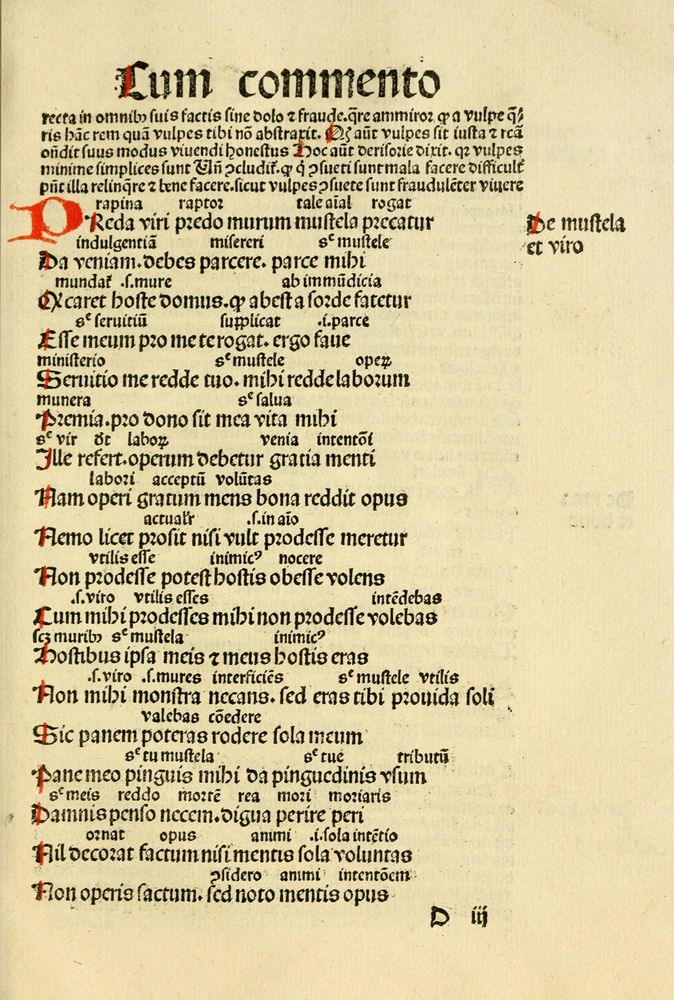 Cum commento
recta in omnibꝫ suis factis sine dolo ⁊ fraude. qr̄e ammiror ꝙ a vulpe q̄-
ris hāc rem quā vulpes tibi nō abstraxit. Qꝫ aūt vulpes sit iusta ⁊ rc̄a
on̄dit suus modus viuendi honestus Hoc aūt derisorie dixit. qꝛ vulpes
minime simplices sunt Un̄ ꝯcludit᷑. ꝙ q̇ ꝯsueti sunt mala facere difficult᷑
pn̄t illa relinq̄re ⁊ bene facere. sicut vulpes ꝯsuete sunt fraudulēter viuere
rapina raptor tale aīal rogat
PReda viri predo murum mustela precatur
De mustela
et viro
indulgentiā misereri sᶜ mustele
Da veniam. debes parcere. parce mihi
mundat᷑ .s. mure ab immūdicia
Qꝫ caret hoste domus. ꝙ abest a sorde fatetur
sᶜ seruitiū supplicat .i. parce
Esse meum pro me te rogat. ergo faue
ministerio sᶜ mustele opeꝝ
Seruitio me redde tuo. mihi redde laborum
munera sᶜ salua
Premia. pro dono sit mea vita mihi
sᶜ vir dt̄ laboꝝ venia intentōi
Ille refert. operum debetur gratia menti
labori acceptū volūtas
Nam operi gratum mens bona reddit opus
actualr̄ .s. in aīo
Nemo licet prosit nisi vult prodesse meretur
vtilis esse inimicꝰ nocere
Non prodesse potest hostis obesse volens
.s. viro vtilis esses intēdebas
Cum mihi prodesses mihi non prodesse volebas
scꝫ muribꝫ sᶜ mustela inimicꝰ
Hostibus ipsa meis ⁊ meus hostis eras
.s. viro .s. mures interficiēs sᶜ mustele vtilis
Non mihi monstra necans. sed eras tibi prouida soli
valebas cōedere
Sic panem poteras rodere sola meum
sᶜ tu mustela sᶜ tue tributū
Pane meo pinguis mihi da pinguedinis vsum
sᶜ meis reddo mortē rea mori moriaris
Damnis penso necem. digua perire peri
ornat opus animi .i. sola intētio
Nil decorat factum nisi mentis sola voluntas
ꝯsidero animi intentōem
Non operis factum. sed noto mentis opus
D iij